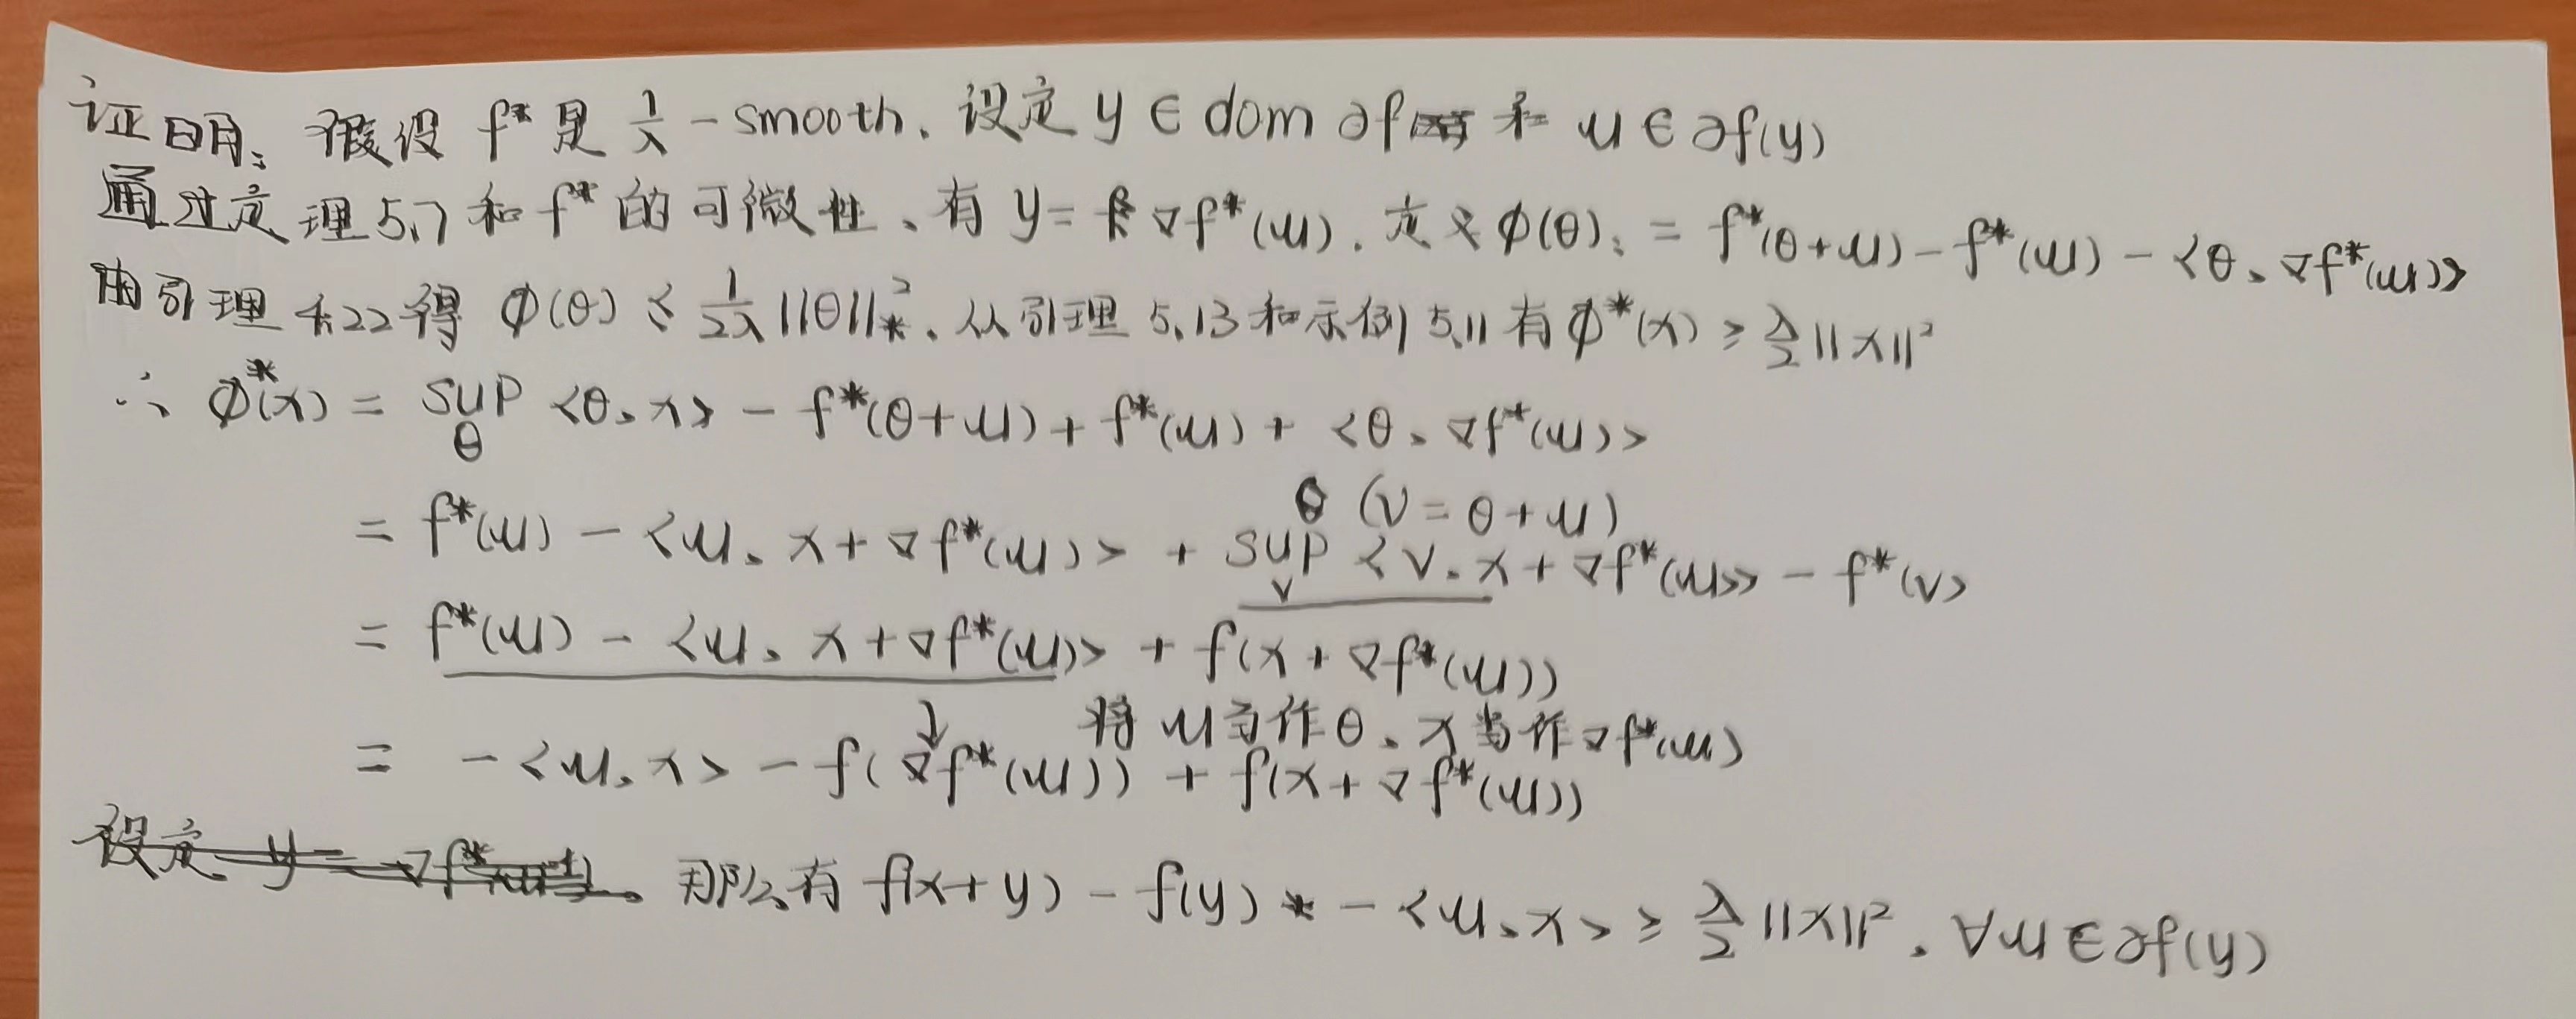 证明: 假设 f* 是 1/λ - smooth. 设定 y ∈ dom ∂f 和 u ∈ ∂f(y)
通过定理5.7和 f* 的可微性、有 y = ∇f*(u). 定义 ϕ(θ): = f*(θ+u) - f*(u) - <θ、∇f*(u)>
由引理 4.22 得 ϕ(θ) ≤ 1/2λ ||θ||²*. 从引理 5.13 和示例 5.11 有 ϕ*(x) ≥ λ/2 ||x||²
∴ ϕ*(x) = sup_θ <θ、x> - f*(θ+u) + f*(u) + <θ、∇f*(u)>
θ (v = θ + u)
= f*(u) - <u、x + ∇f*(u)> + sup_v <v、x + ∇f*(u)> - f*(v)
= f*(u) - <u、x + ∇f*(u)> + f(x + ∇f*(u))
↓ 将 u 当作 θ、x 当作 ∇f*(u)
= - <u、x> - f(∇f*(u)) + f(x + ∇f*(u))
设定 y = ∇f* 那么有 f(x+y) - f(y) - <u、x> ≥ λ/2 ||x||². ∀u ∈ ∂f(y)